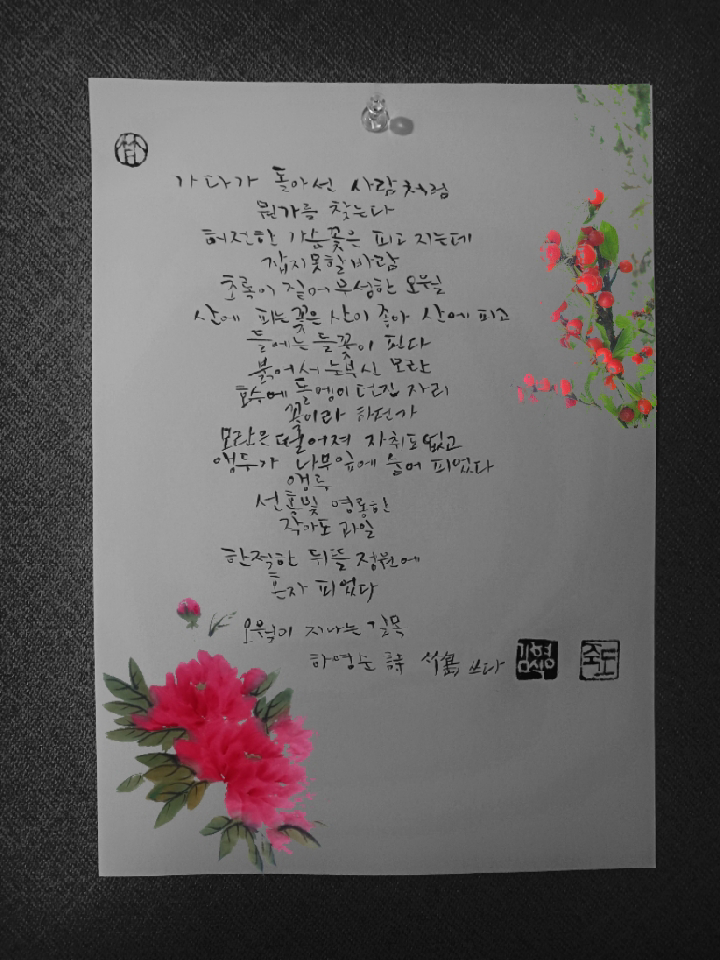 가다가 돌아선 사람처럼
뭔가를 찾는다
허전한 가슴 꽃은 피고 지는데
잡지 못할 바람
초록이 짙어 무성한 오월
산에 피는 꽃은 산이 좋아 산에 피고
들에는 들꽃이 핀다
붉어서 눈부신 모란
호수에 돌멩이 던진 자리
꽃이라 하던가
모란은 떨어져 자취도 없고
앵두가 나무잎에 숨어 피었다
앵두
선홍빛 영롱한
작아도 과일
한적한 뒤뜰 정원에
혼자 피었다
오월이 지나는 길목
하영순 詩 竹島 쓰다
김형식
죽도